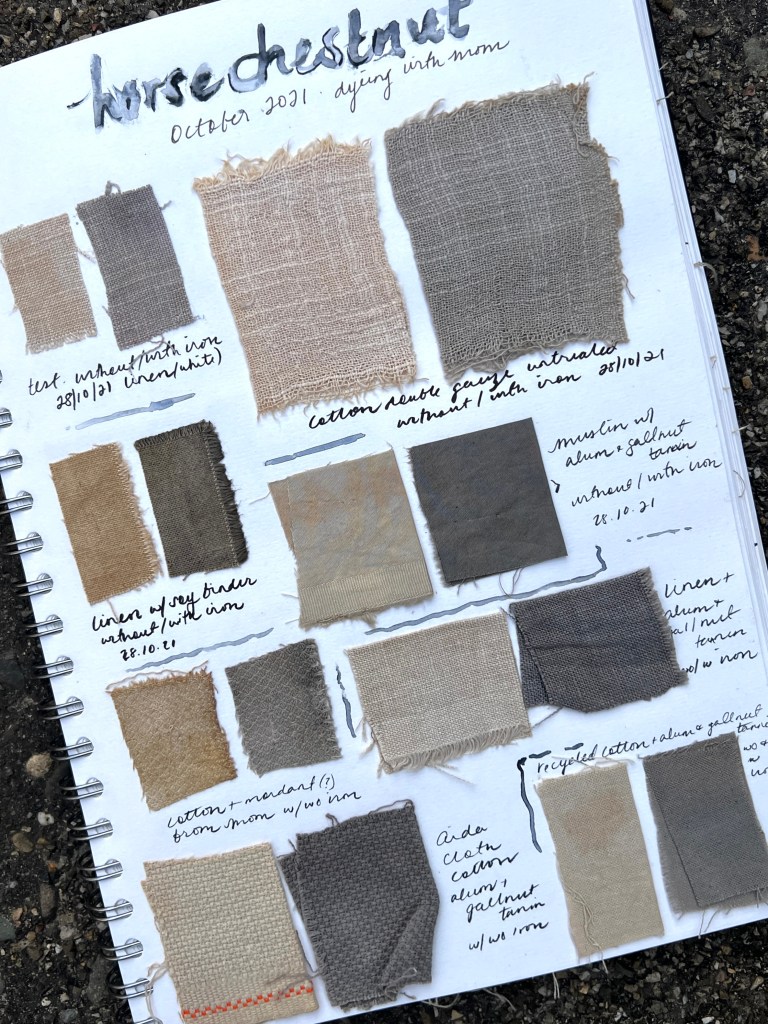 horse chestnut
October 2021 · dyeing with mom
test. without/with iron
28/10/21 linen(white)
cotton double gauge untreated
without/with iron 28/10/21
muslin w/
alum & gallnut
tannin
without/with iron
28.10.21
linen w/ soy binder
without/with iron
28.10.21
linen +
alum +
gall nut
tannin
wo/w iron
cotton + mordant(?)
from mom w/wo iron
recycled cotton + alum & gallnut
tannin
wo &
w
iron
Aida
cloth
cotton
alum +
gallnut
tannin
w/wo iron